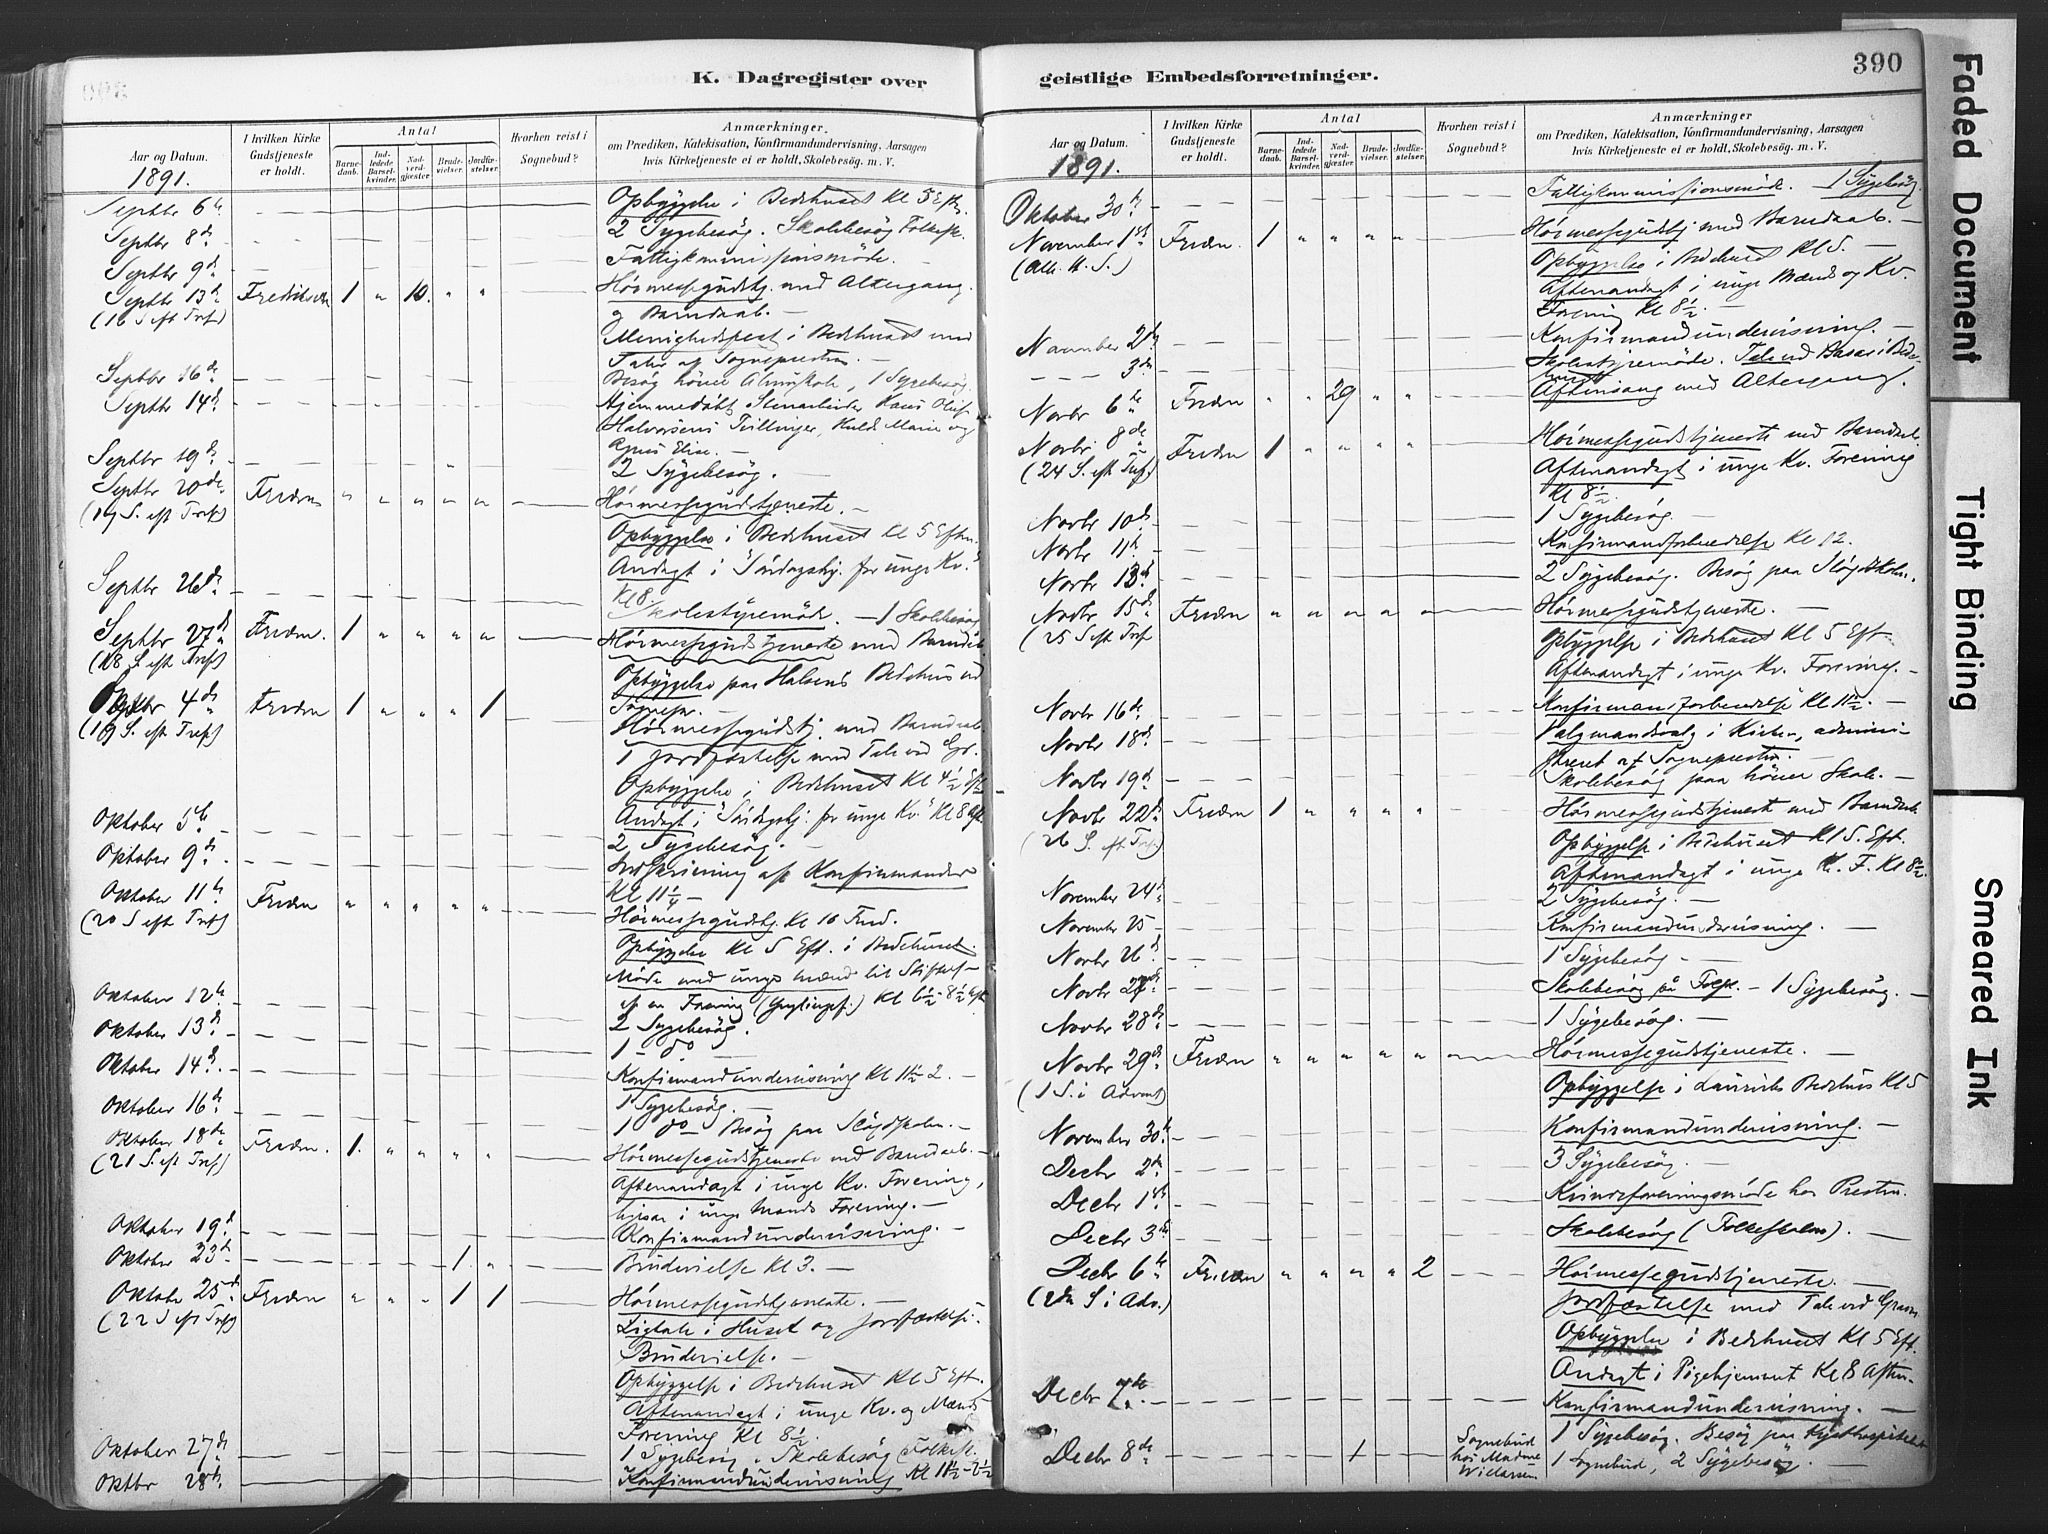 K. Dagregister over
Aar og Datum.
1891.
I hvilken Kirke Gudstjeneste er holdt.
Antal
Barne-daab.
Ind-ledede Barsel-kvinder.
Nad-verd-gjæster.
Brude-vielser.
Jordfæ-stelser.
Hvorhen reist i Sognebud?
Anmærkninger.
om Prædiken, Katekisation, Konfirmandundervisning, Aarsagen
hvis Kirketjeneste ei er holdt, Skolebesøg. m. V.
Septbr 6te Opbyggelse i Bedehuset Kl 5 Eft.
Septbr 8de 2 Sygebesøg. Skolebesøg Folkesk.
Septbr 9de Fattigkommissionsmøde.
Septbr 13de Fredriksværn 1 " 10. " " Høimessegudstj. med Altergang
(16 S. eft Tref) og Barndaab.
Menighedsfest i Bedehuset med
Taler af Sognepresten. —
Septbr 16de Besøg høiere Almuskole, 1 Sygebesøg.
Septbr 14de Hjemmedøbt Stenarbeider Hans Oluf
Halvorsens Tvillinger, Huld Marie og
Agnes Elise. —
Septbr 19de 2 Sygebesøg. —
Septbr 20de Fredværn " " " " " Høimessegudstjeneste. —
(17 S. eft Tref)
Opbyggelse i Bedehuset Kl 5 Eftm.
Andagt i "Søndagshj. for unge Kv."
Kl 8.
Septbr 26de Skolestyremøde. — 1 Skolebesøg
Septbr 27de Fredværn. 1 " " " " Høimessegudstjeneste med Barndåb.
(18 S. eft Tref)
Opbyggelse paa Halsens Bedehus ved
Sognepr. —
Oktbr 4de Fredværn 1 " " " 1 Høimessegudstj. med Barndaab
(19 S. eft Tref) 1 Jordfæstelse med Tale ved Gr.
Opbyggelse i Bedehuset Kl 4 1/2 Eft
Andagt i "Søndagshj: for unge Kv" Kl 8 Aft
Oktober 5te 2 Sygebesøg. —
Oktober 9de Indskrivning af Konfirmander
Kl 11 1/4 —
Oktober 11te Fredværn " " " " " Høimessegudstj. Kl 10 Fred.
(20 S eft Tref) Opbyggelse Kl 5 Eft. i Bedehuset.
Møde med unge mænd til Stiftelse
af en Forening (Ynglingef.) Kl 6 1/2 - 8 1/2 Aft
Oktober 12te 2 Sygebesøg. —
Oktober 13de 1 - do —
Oktober 14de Konfirmandundervisning Kl 11 1/2 2. —
Oktober 16de 1 Sygebesøg. —
1 do — Besøg paa Sløidskolen. —
Oktober 18de Fredværn. 1. " " " " Høimessegudstjeneste med Barndaab. —
(21 S. eft Tref) Aftenandagt i unge Kv. Forening,
ligesaa i unge Mænds Forening. —
Oktober 19de Konfirmandundervisning. —
Oktober 23de 1. " Brudevielse Kl 3. —
Oktobr 25de Fredværn " " " 1 1 Høimessegudstjeneste. —
(22 S eft Tref) Ligtale i Huset og Jordfæstelse.
Brudevielse. —
Opbyggelse i Bedehuset Kl 5 Eft.
Aftenandagt i unge Kv. og Mænds
Forening Kl 8 1/2
Oktober 27de 1 Sygebesøg. Skolebesøg Folkesk.
Oktbr 28de Konfirmandundervisning Kl 11 1/2 - 2 1/2
geistlige Embedsforretninger.
390
Aar og Datum.
1891.
I hvilken Kirke Gudstjeneste er holdt.
Antal
Barne-daab.
Ind-ledede Barsel-kvinder.
Nad-verd-gjæster.
Brude-vielser.
Jordfæ-stelser.
Hvorhen reist i Sognebud?
Anmærkninger
om Prædiken, Katekisation, Konfirmandundervisning, Aarsagen
hvis Kirketjeneste ei er holdt, Skolebesøg. m. V.
Oktober 30te Fattigkommissionsmøde. — 1 Sygebesøg
November 1ste Fredværn. 1 " " " " Høimessegudstj med Barndaab. —
(Alle H. S.) Opbyggelse i Bedehuset Kl 5. —
Aftenandagt i unge Mænds og Kv.
Forening Kl 8 1/2
November 2den Konfirmandundervisning. —
— — 3de Skolestyremøde. Tale ved Basar i Bede-
huset
Novbr 6te Fredværn " " 29 " " Aftensang med Altergang.
Novbr 8de Fredværn 1 " " " Høimessegudstjeneste med Barndaab.
(24 S. eft Tref) Aftenandagt i unge Kv. Forening
Kl 8 1/2
Novbr 10de 1 Sygebesøg. —
Novbr 11te Konfirmandforberedelse Kl 12.
Novbr 13de 2 Sygebesøg. Besøg paa Sløjdskolen.
Novbr 15de Fredværn " " " " " Høimessegudstjeneste. —
(25 S eft Tref Opbyggelse i Bedehuset Kl 5 Eft.
Aftenandagt i unge Kv. Forening. —
Novbr 16de Konfirmandforberedelse Kl 11 1/2. —
Novbr 18de Valgmandsvalg i Kirken, admini-
streret af Sognepresten.
Novbr 19de Skolebesøg paa høiere Skole. —
Novbr 22de Fredværn 1 " " " " Høimessegudstjeneste med Barndaab.
(26 S. eft Tref) Opbyggelse i Bedehuset Kl 5. Eft.
Aftenandagt i unge K. F. Kl 8 1/2.
November 24de 2 Sygebesøg. —
November 25 — Konfirmandundervisning. —
Novbr 26de 1 Sygebesøg —
Novbr 27de Skolebesøg på Folksk. — 1 Sygebesøg. —
Novbr 28de 1 Sygebesøg. —
Novbr 29de Fredværn " " " " " Høimessegudstjeneste. —
(1 S. i Advent) Opbyggelse i Laurviks Bedehus Kl 5
November 30te Konfirmandundervisning. —
Decbr 2den 3 Sygebesøg. —
Decbr 1ste Kvindeforeningsmøde hos Presten.
Decbr 3de Skolebesøg (Folkeskolen).
Decbr 6te Fredværn " " " " 2 Høimessegudstjeneste. —
(2den S i Adv.) Jordfæstelse med Tale ved Graven
Opbyggelse i Bedehuset Kl 5 Eft.
Andagt i Pigehjemmet Kl 8 Aften.
Decbr 7de Konfirmandundervisning. —
1 Sygebesøg. Besøg paa Kysthospitalet
Decbr 8de 1 Sognebud hos Madame 1 Sognebud, 2 Sygebesøg. —
Faded Document
Tight Binding
Smeared Ink